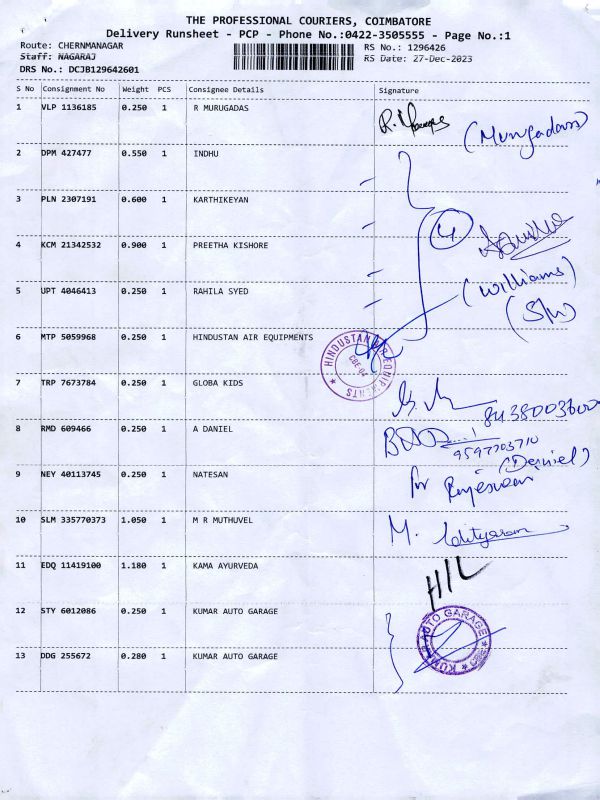 THE PROFESSIONAL COURIERS, COIMBATORE
Delivery Runsheet - PCP - Phone No.:0422-3505555 - Page No.:1
Route: CHERNMANAGAR RS No.: 1296426
Staff: NAGARAJ RS Date: 27-Dec-2023
DRS No.: DCJB129642601
S No Consignment No Weight PCS Consignee Details Signature
1 VLP 1136185 0.250 1 R MURUGADAS
(Murugadass)
2 DPM 427477 0.550 1 INDHU
3 PLN 2307191 0.600 1 KARTHIKEYAN
4
4 KCM 21342532 0.900 1 PREETHA KISHORE
(williams)
5 UPT 4046413 0.250 1 RAHILA SYED
(S/W)
6 MTP 5059968 0.250 1 HINDUSTAN AIR EQUIPMENTS
HINDUSTAN AIR EQUIPMENTS
CBE-04
7 TRP 7673784 0.250 1 GLOBA KIDS
8 RMD 609466 0.250 1 A DANIEL
9597703710
(Daniel)
9 NEY 40113745 0.250 1 NATESAN
for
10 SLM 335770373 1.050 1 M R MUTHUVEL
M.
11 EDQ 11419100 1.180 1 KAMA AYURVEDA
H/L
12 STY 6012086 0.250 1 KUMAR AUTO GARAGE
KUMAR AUTO GARAGE
13 DDG 255672 0.280 1 KUMAR AUTO GARAGE